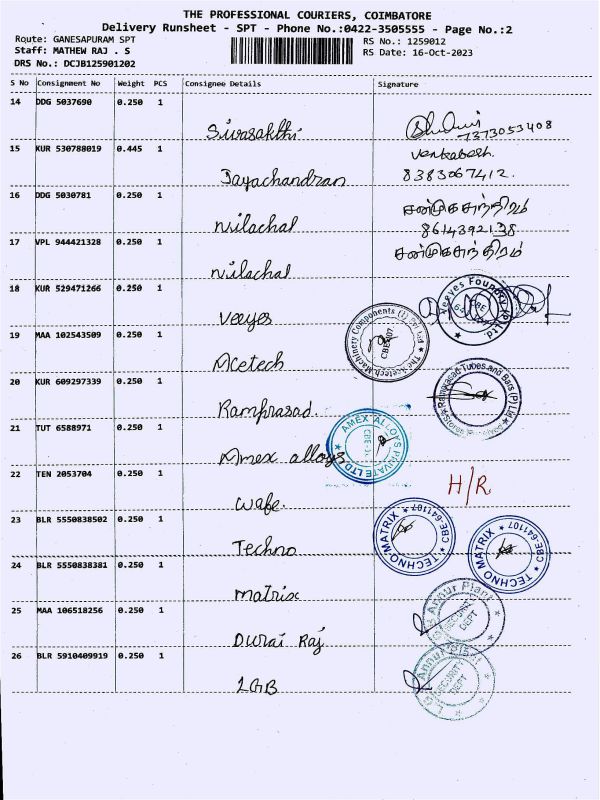 THE PROFESSIONAL COURIERS, COIMBATORE
Delivery Runsheet - SPT - Phone No.:0422-3505555 - Page No.:2
Route: GANESAPURAM SPT
RS No.: 1259012
Staff: MATHEW RAJ . S
RS Date: 16-Oct-2023
DRS No.: DCJB125901202
S No Consignment No Weight PCS Consignee Details Signature
14 DDG 5037690 0.250 1
Sivasakthi
7373053408
15 KUR 530788019 0.445 1
Venkatesh.
Jayachandran 8383067412.
16 DDG 5030781 0.250 1
சண்முகசுந்திரம்
Nilachal 8614392138
17 VPL 944421328 0.250 1
சண்முகசுந்திரம்
Nilachal
18 KUR 529471266 0.250 1
Veeyes
Veeyes Foundry
Ltd.
19 MAA 102543509 0.250 1
Acetech
The Acetech Machinery Components (I) Pvt Ltd
20 KUR 609297339 0.250 1
Ramprasad.
Ramprasad Tubes and Bars (P) Ltd
21 TUT 6588971 0.250 1
Amex alloys
AMEX ALLOYS PRIVATE LTD
22 TEN 2053704 0.250 1
H/R
Wafe.
23 BLR 5550838502 0.250 1
Techno
TECHNO MATRIX CBE-641107
TECHNO MATRIX CBE-641107
24 BLR 5550838381 0.250 1
Matrix
25 MAA 106518256 0.250 1
Durai Raj
Annur Plant
SECURITY
DEPT
26 BLR 5910409919 0.250 1
LGB
L G B Annur Plant
SECURITY
DEPT